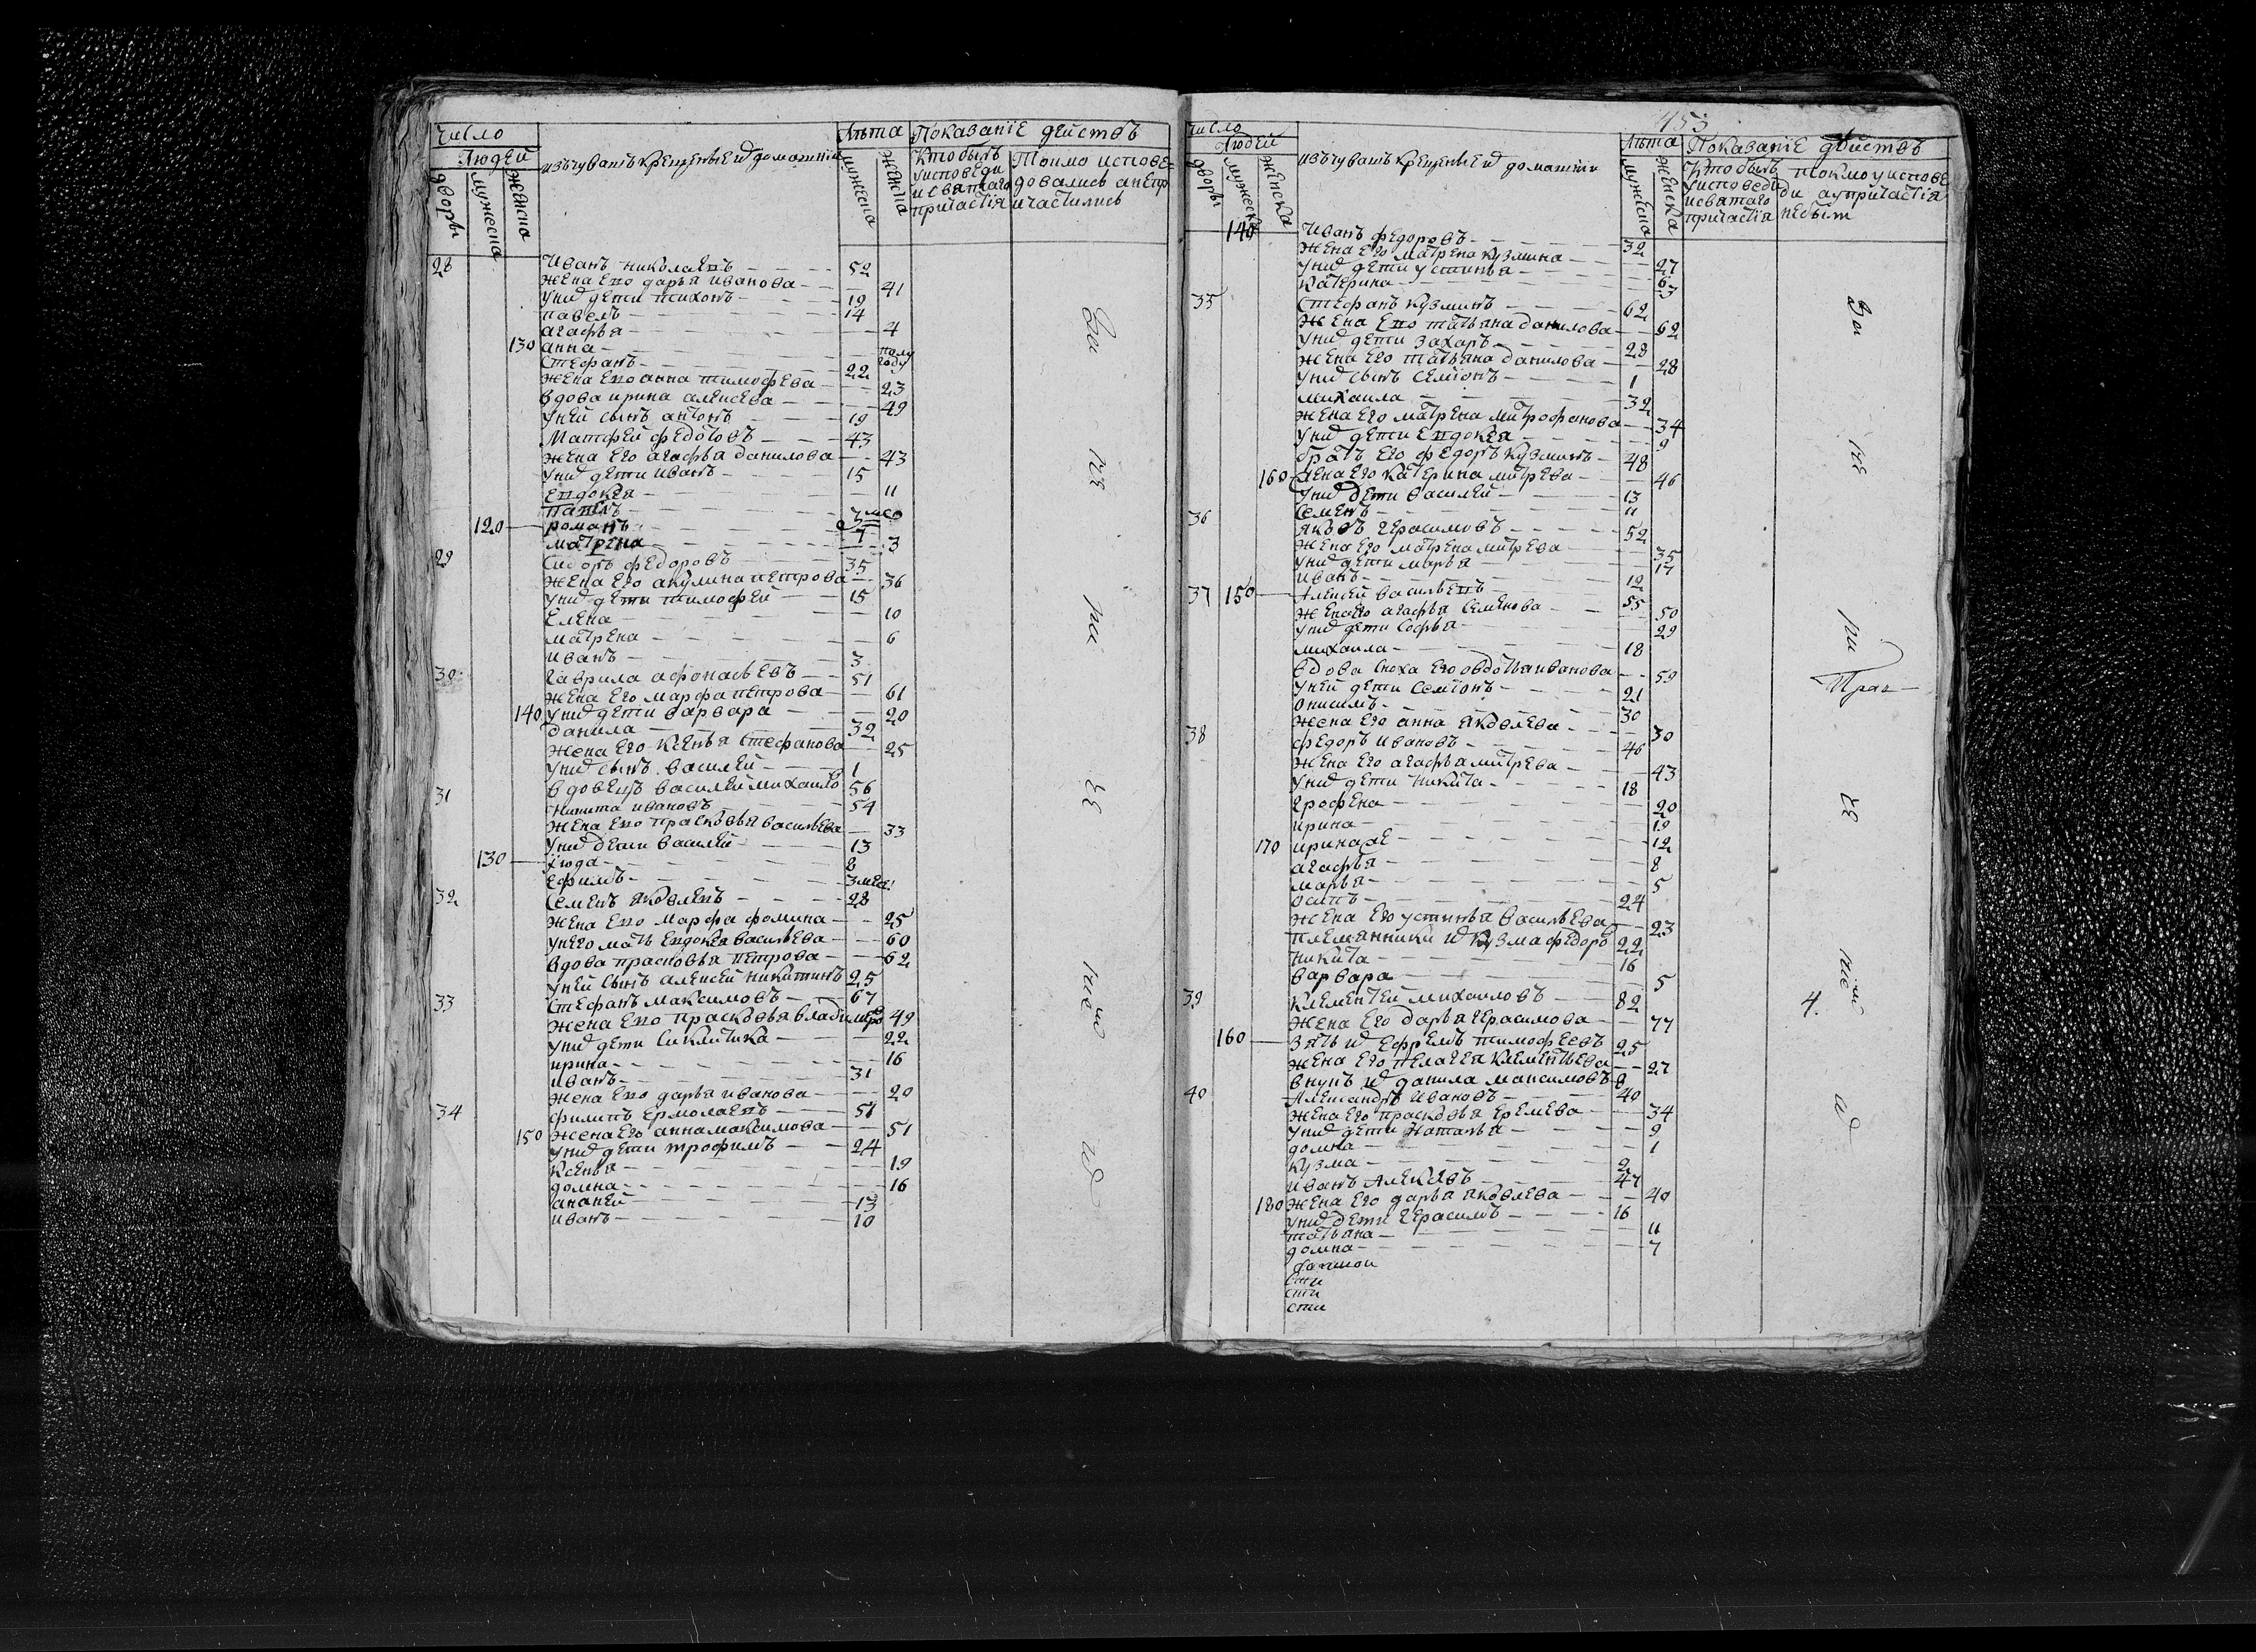 Число
Людей
дворы
мужеска
женска
изъ чувашъ крещеные и домашнии
Лѣта
мужеска
женска
Показаніе действъ
Кто былъ
у исповеди
и святаго
причастія
Токмо испове-
довались а не пр
ичастились
28
Иванъ николаевъ 52
жена ево дарья иванова 41
у них дети тихонъ 19
павелъ 14
агафья 4
130 анна полу году
Стефанъ 22
жена ево анна тимофева 23
вдова ирина алексева 49
у ней сынъ антонъ 19
Матфей федотовъ 43
жена его агафья данилова 43
у них дети иванъ 15
евдокея 11
120 романъ
матрена 3
29 Сидоръ федоровъ 35
жена его акулина петрова 36
у них дети тимофей 15
Елена 10
матрена 6
иванъ 3
30 гаврила афонасьевъ 51
жена его марфа петрова 61
140 у них дети варвара 20
данила 32
жена его ксенья стефанова 25
у них сынъ василей 1
31 вдовецъ василей михаило 56
никита ивановъ 54
жена ево прасковья васильева 33
у них дети василей 13
130 8
ефимъ 3 мес:
32 Семенъ яковлевъ 28
жена ево марфа фомина 25
у него мать евдокея васильева 60
вдова прасковья петрова 62
у ней сынъ алексей никитинъ 25
33 Стефанъ максимовъ 67
жена ево прасковья владимиро 49
у них дети сиклитика 22
ирина 16
иванъ 31
жена ево дарья иванова 20
34 филипъ ермолаевъ 51
150 жена его анна максимова 51
у них дети трофимъ 24
ксенья 19
домна 16
ананей 13
иванъ 10
453
Число
Людей
дворы
мужеска
женска
изъ чувашъ крещеные и домашнии
Лѣта
мужеска
женска
Показаніе действъ
Кто былъ
у исповеди
и святаго
причастія
токмо у испове
ди а у причастія
не был
140 Иванъ федоровъ 32
жена его матрена кузмина 27
у них дети устинья 6
катерина 3
35 Стефанъ кузминъ 62
жена ево татьяна данилова 62
у них дети захаръ 28
жена его татьяна данилова 28
у них сынъ семіонъ 1
михаила 32
жена его матрена митрофанова 34
у них дети евдокея 9
братъ его федоръ кузминъ 48
160 жена его катерина митрева 46
у них дети василей 13
семенъ 11
36 яковъ герасимовъ 52
жена его матрена митрева 35
у них дети марья 17
иванъ 12
37 150 алексей васильевъ 55
жена его агафья семенова 50
у них дети софья 29
михаила 18
вдова сноха его овдотья иванова 59
у ней дети семіонъ 21
онисимъ 30
жена его анна яковлева 30
38 федоръ ивановъ 46
жена его агафья митрева 43
у них дети никита 18
грофена 20
ирина 19
170 12
агафья 8
марья 5
осипъ 24
жена его устинья васильева 23
племянники их кузма федоро 22
никита 16
варвара 5
39 клементей михаиловъ 82
жена его дарья герасимова 77
160 зять их ефремъ тимофеевъ 25
жена его пелагея клементьева 27
внукъ их данила максимовъ 8
40 Александръ ивановъ 40
жена его прасковья еремева 34
у них дети наталья 9
домна 1
кузма 2
иванъ алексевъ 47
180 жена его дарья яковлева 40
у них дети герасимъ 16
татьяна 11
домна 7
сти
сти
4.